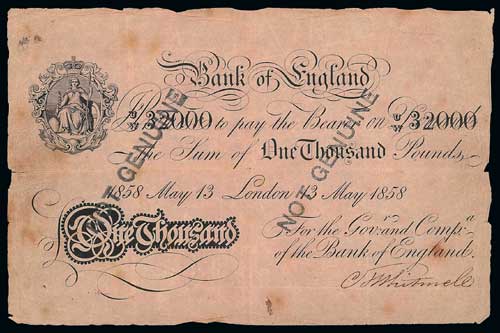 Bank of England
32000 to pay the Bearer on 32000
the Sum of One Thousand Pounds,
1858 May 13 London 13 May 1858
For the Gov.r and Comp.a
One Thousand
of the Bank of England.
GENUINE
NOT GENUINE